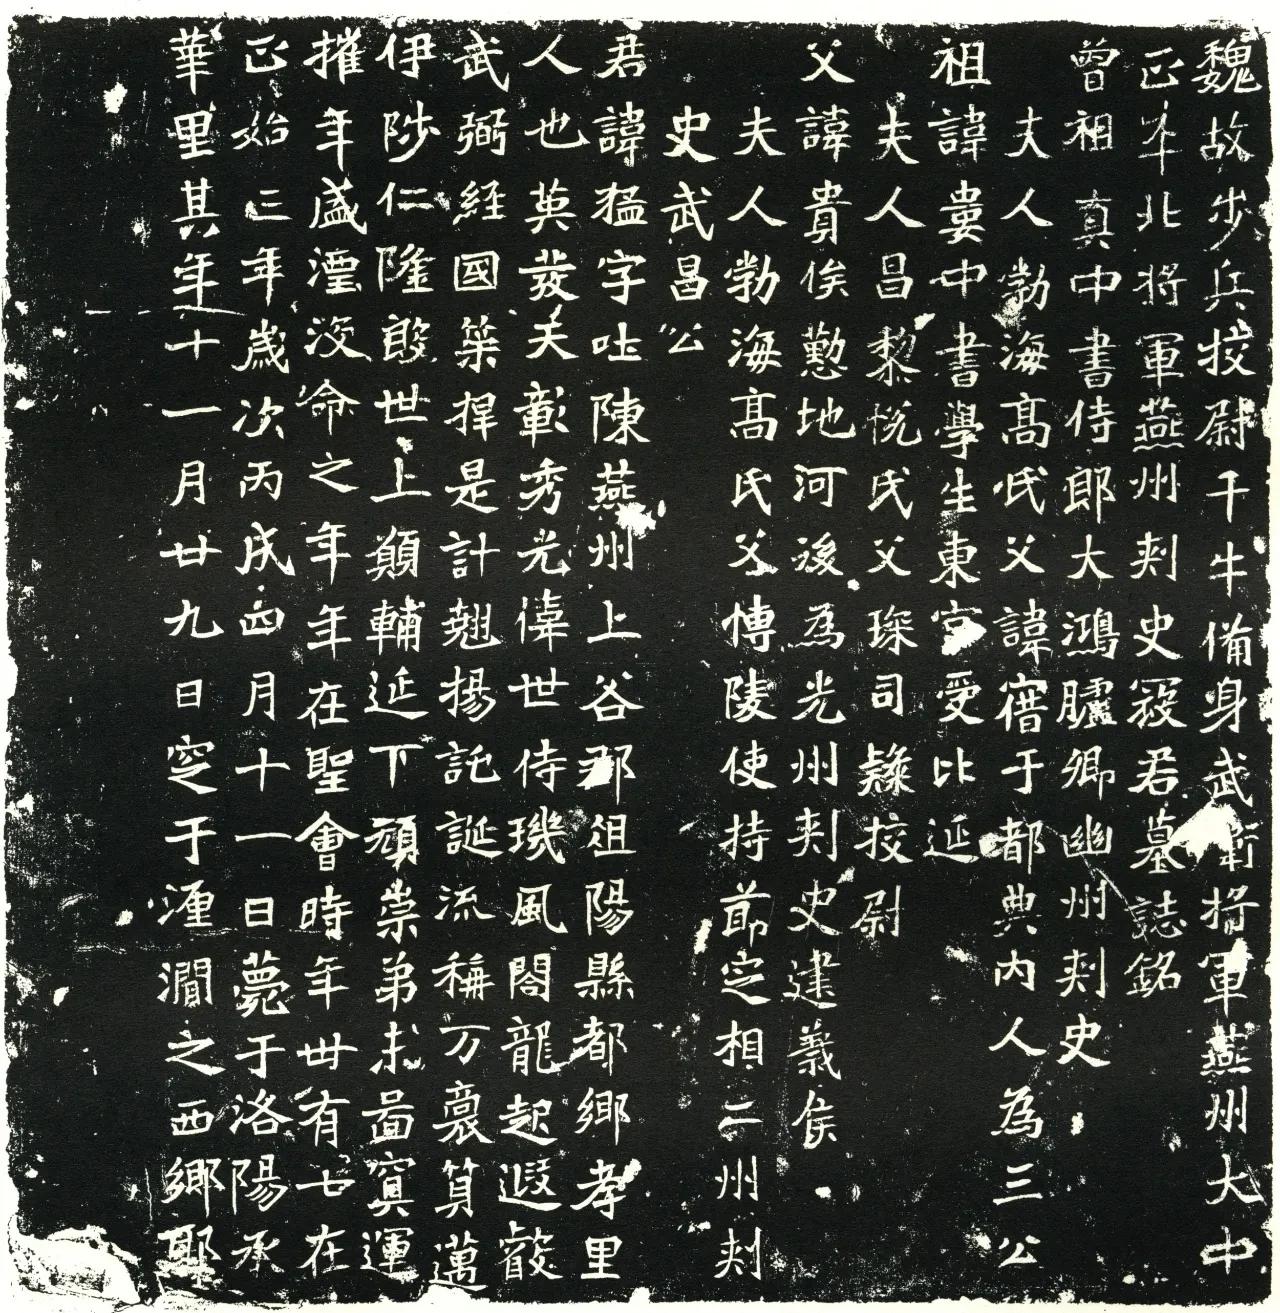 魏故步兵挍尉千牛備身武衛將軍燕州大中
正平北將軍燕州刾史寇君墓誌銘
曾祖真中書侍郎大鴻臚卿幽州刾史
夫人勃海髙氏父諱潛于都典內人為三公
祖諱婁中書學生東宮受比延
夫人昌黎恱氏父琛司隸挍尉
父諱貴俟懃地河後為光州刾史建義侯
夫人勃海髙氏父博陵使持節定相二州刾
史武昌公
君諱猛字吐陳燕州上谷郡俎陽縣都鄉孝里
人也英發夭彰秀光偉世侍璣風閣龍起遐巖
武弼經國筞捍是計翹揚託誕流稱万裛筫邁
伊陟仁隆殷世上顛輔延下頑崇弟未啚寘運
摧年盛湮没命之年年在聖會時年丗有七在
正始三年歲次丙戌四月十一日薨于洛陽承
華里其年十一月廿九日窆于湹澗之西鄉耶